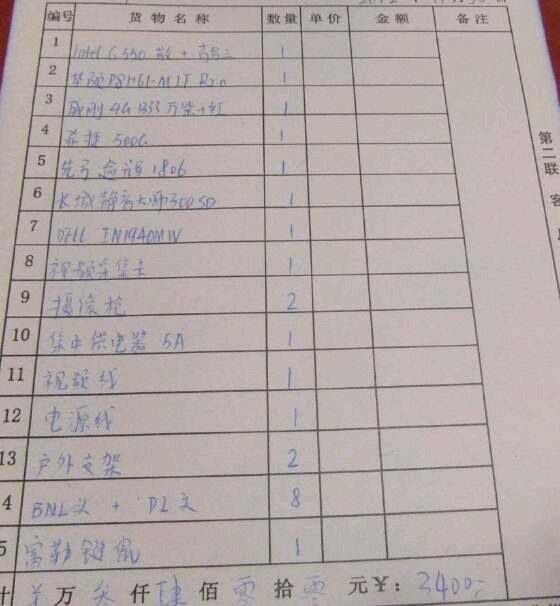 编号 货物名称 数量 单价 金额 备注
1 Intel G550 散 + 1
2 华硕P8H61-M LE R2.0 1
3 威刚 4G 1333 万紫千红 1
4 希捷 500G 1
5 先马 1806 1
6 长城静音大师300SD 1
7 DELL IN1940MW 1
8 视频采集卡 1
9 摄像枪 2
10 集中供电器 5A 1
11 视频线 1
12 电源线 1
13 户外支架 2
4 BNL头 + DL头 8
5 富勒键鼠 1
计 万 叁仟肆佰零拾零元¥: 3400
第二联 客